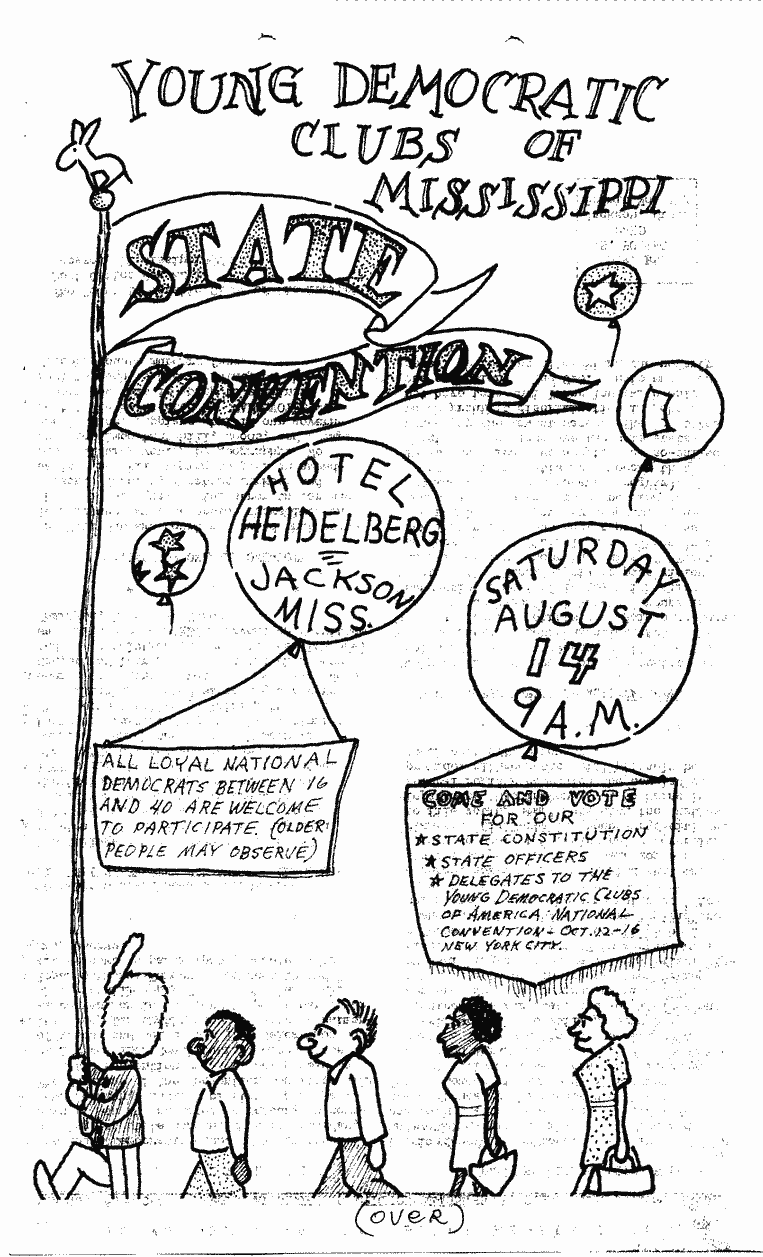 YOUNG DEMOCRATIC
CLUBS OF
MISSISSIPPI
STATE
CONVENTION
HOTEL
HEIDELBERG
JACKSON
MISS.
SATURDAY
AUGUST
14
9 A.M.
ALL LOYAL NATIONAL
DEMOCRATS BETWEEN 16
AND 40 ARE WELCOME
TO PARTICIPATE. (OLDER
PEOPLE MAY OBSERVE)
COME AND VOTE
FOR OUR
★ STATE CONSTITUTION
★ STATE OFFICERS
★ DELEGATES TO THE
YOUNG DEMOCRATIC CLUBS
OF AMERICA NATIONAL
CONVENTION - OCT. 12-16
NEW YORK CITY.
(OVER)